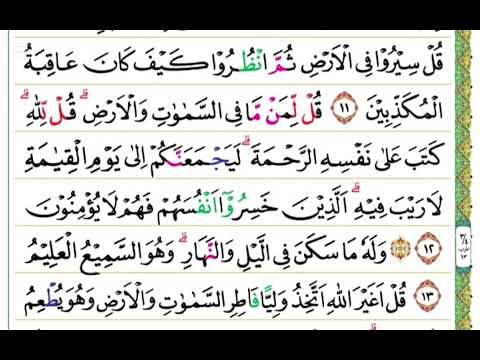 قُلْ سِيْرُوْا فِى الْاَرْضِ ثُمَّ انْظُرُوْا كَيْفَ كَانَ عَاقِبَةُ
الْمُكَذِّبِيْنَ ۝١١ قُلْ لِّمَنْ مَّا فِى السَّمٰوٰتِ وَالْاَرْضِ ۗ قُلْ لِّلّٰهِ ۗ
كَتَبَ عَلٰى نَفْسِهِ الرَّحْمَةَ ۗ لَيَجْمَعَنَّكُمْ اِلٰى يَوْمِ الْقِيٰمَةِ
لَا رَيْبَ فِيْهِ ۗ اَلَّذِيْنَ خَسِرُوْٓا اَنْفُسَهُمْ فَهُمْ لَا يُؤْمِنُوْنَ
۝١٢ وَلَهٗ مَا سَكَنَ فِى الَّيْلِ وَالنَّهَارِ ۗ وَهُوَ السَّمِيْعُ الْعَلِيْمُ
۝١٣ قُلْ اَغَيْرَ اللّٰهِ اَتَّخِذُ وَلِيًّا فَاطِرِ السَّمٰوٰتِ وَالْاَرْضِ وَهُوَ يُطْعِمُ